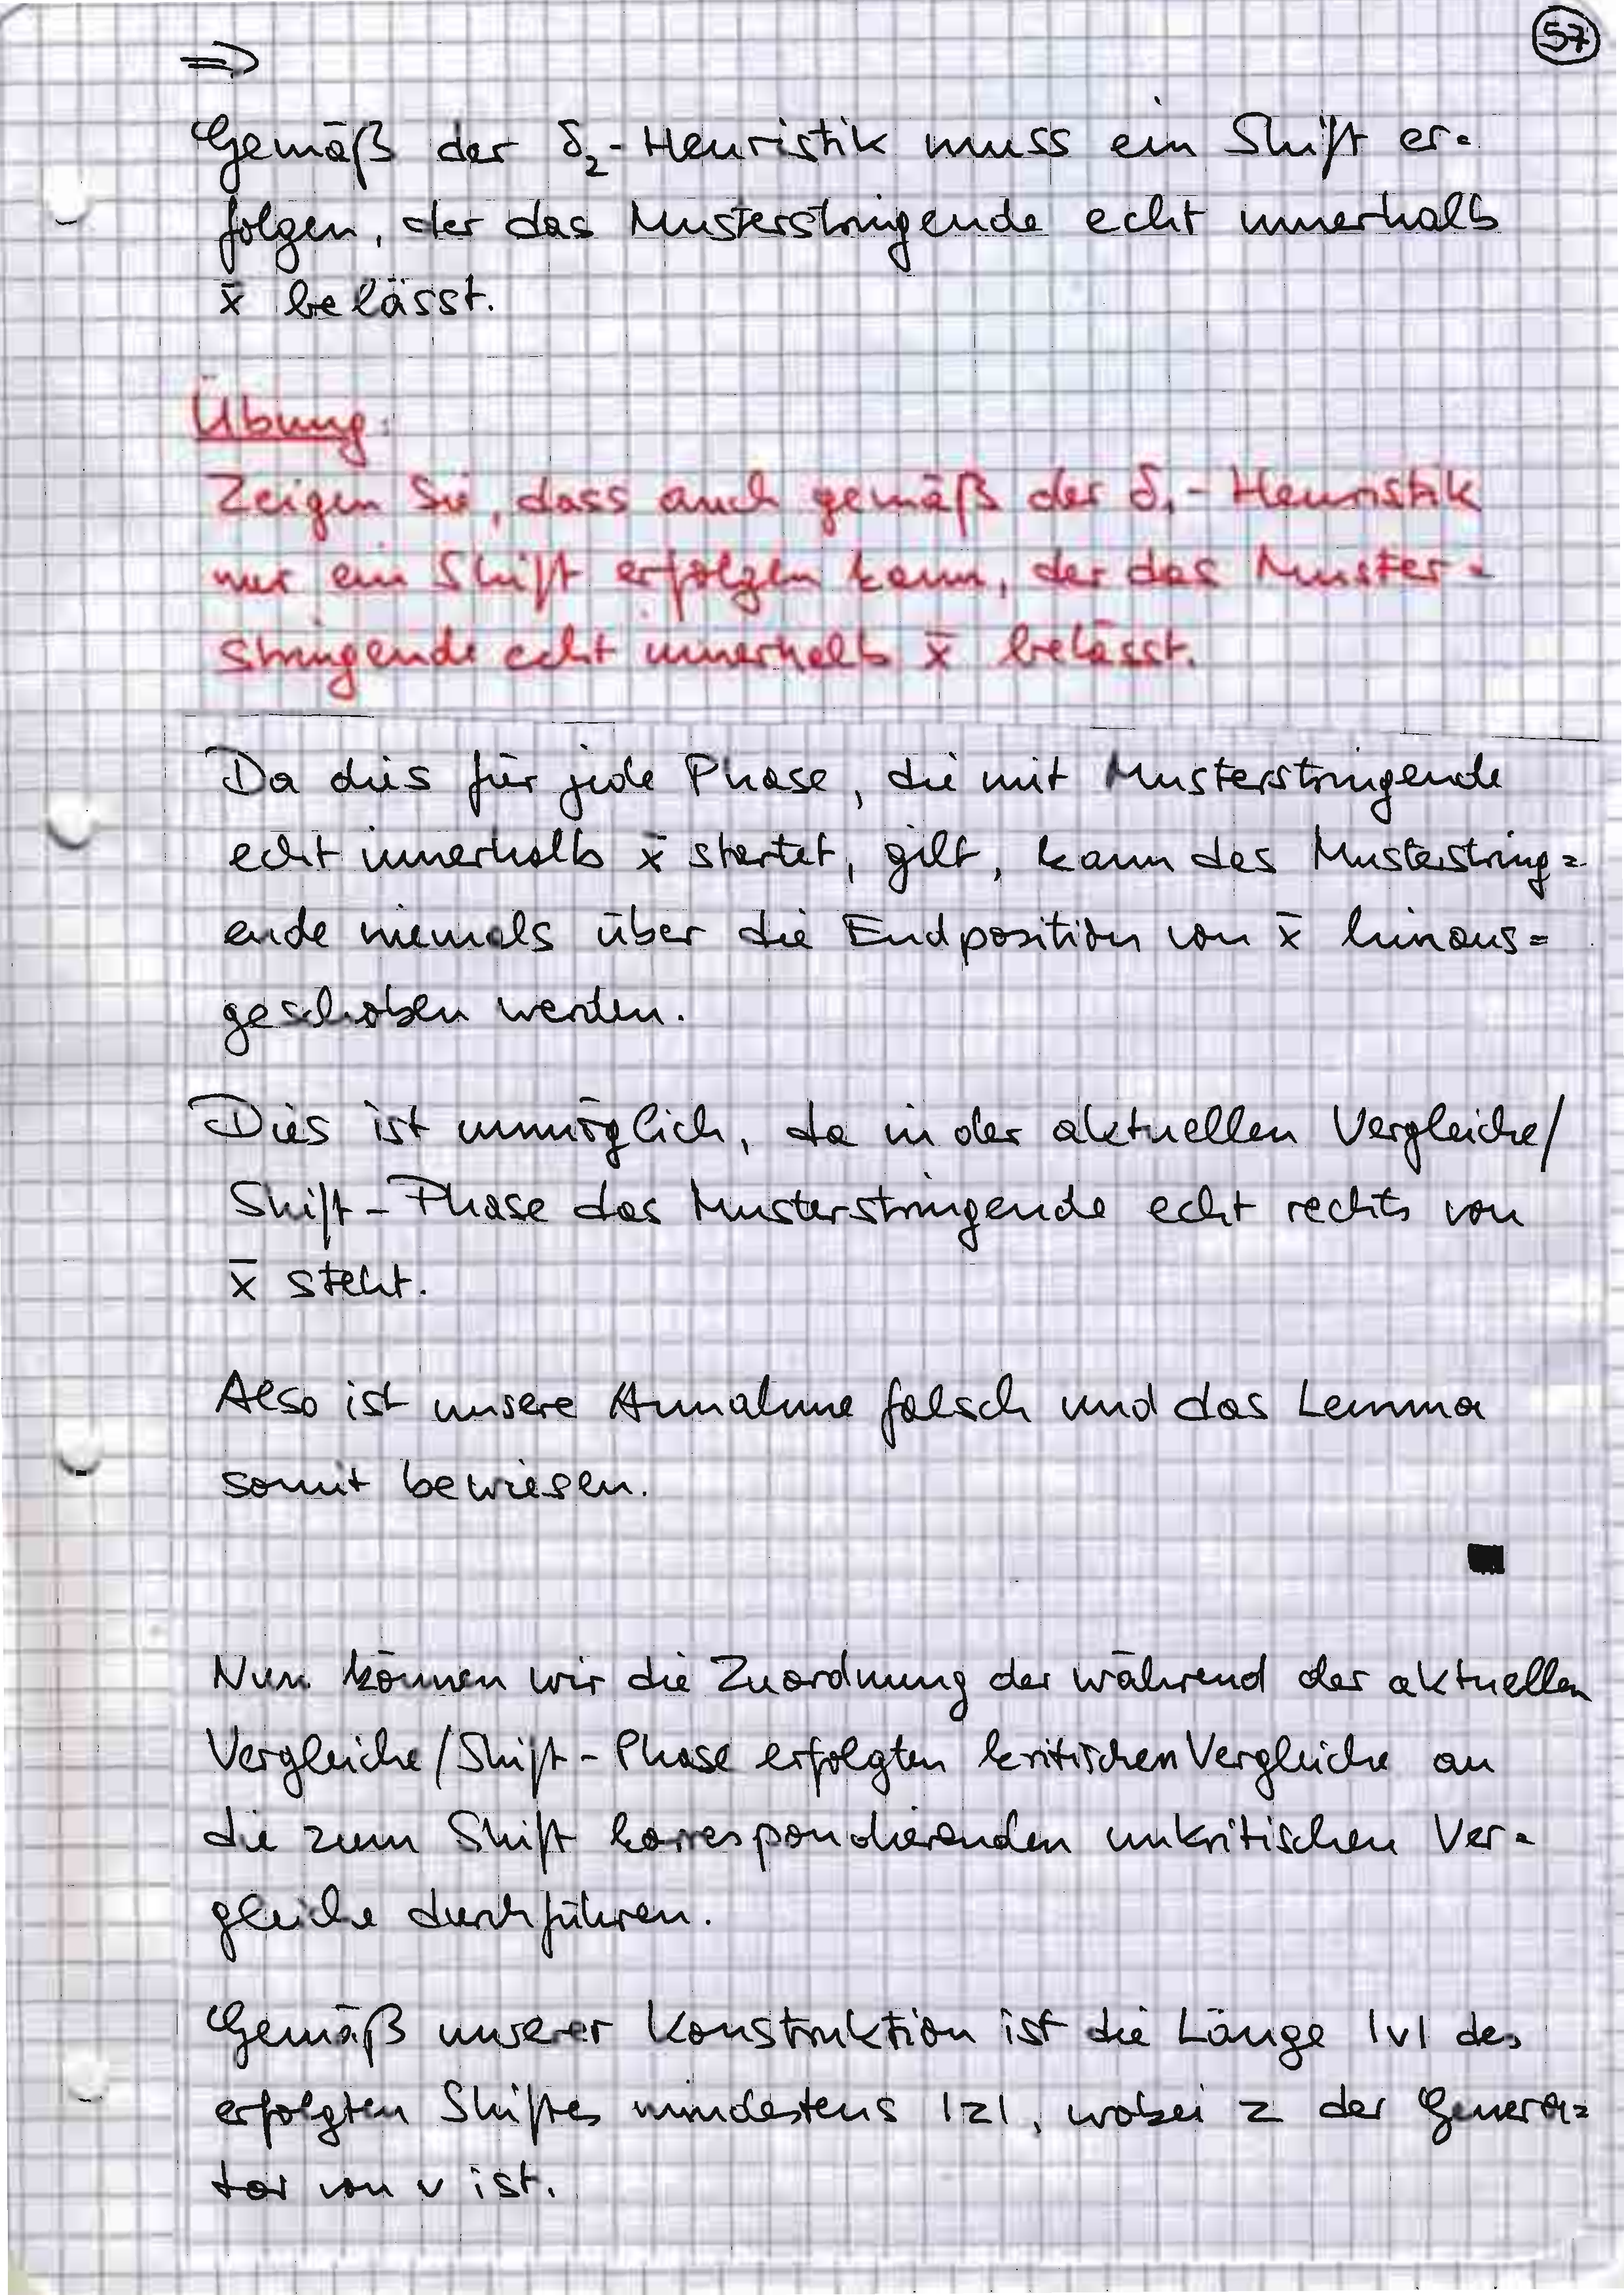 57
⇒
Gemäß der δ₂-Heuristik muss ein Shift er=
folgen, der das Musterstringende echt innerhalb
x̄ belässt.
Übung:
Zeigen Sie, dass auch gemäß der δ₁-Heuristik
nur ein Shift erfolgen kann, der das Muster=
stringende echt innerhalb x̄ belässt.
Da dies für jede Phase, die mit Musterstringende
echt innerhalb x̄ startet, gilt, kann das Musterstring=
ende niemals über die Endposition von x̄ hinaus=
geschoben werden.
Dies ist unmöglich, da in der aktuellen Vergleiche/
Shift-Phase das Musterstringende echt rechts von
x̄ steht.
Also ist unsere Annahme falsch und das Lemma
somit bewiesen.
■
Nun können wir die Zuordnung der während der aktuellen
Vergleiche/Shift-Phase erfolgten kritischen Vergleiche an
die zum Shift korrespondierenden unkritischen Ver=
gleiche durchführen.
Gemäß unserer Konstruktion ist die Länge |v| des
erfolgten Shiftes mindestens |z|, wobei z der Genera=
tor von v ist.